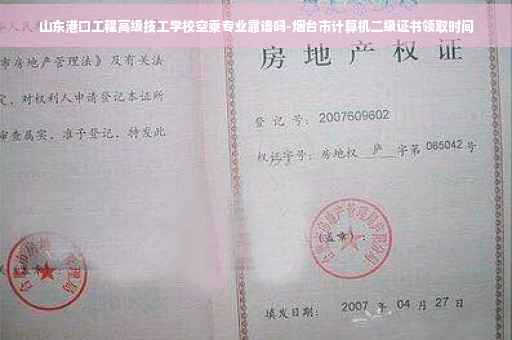 山东港口工程高级技工学校空乘专业靠谱吗-烟台市计算机二级证书领取时间
市房地产管理法》及有关法
定，对权利人申请登记本证所
审查属实，准予登记，特发此
房地产权证
登记号：2007609602
权证字号：房地权 庐 字第 085042 号
(盖章)：
填发日期：2007 年 04 月 27 日